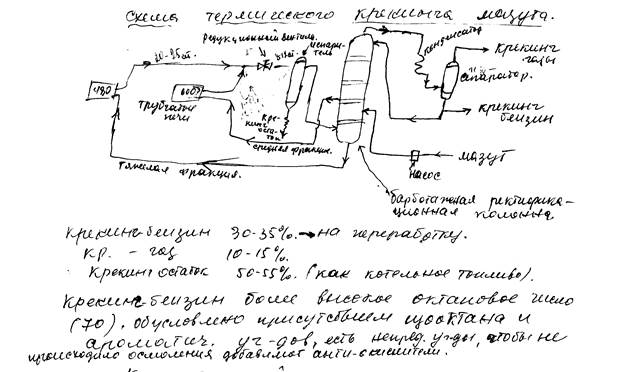 Схема термического крекинга мазута.
Редукционный вентиль
испаритель
конденсатор
крекинг газы
сепаратор.
20-25ат.
480
500°
трубчатые печи
крекинг остаток
средняя фракция.
тяжелая фракция.
крекинг бензин
мазут
насос
барботажная ректификационная колонна
Крекинг-бензин 30-35%. → на переработку.
кр. - газ 10-15%.
Крекинг остаток 50-55%. (как котельное топливо).
Крекинг-бензин более высокое октановое число
(70). обусловлено присутствием изооктана и
ароматич. уг-дов, есть непред. уг-ды, чтобы не
происходило осмоления добавляют анти-окислители.